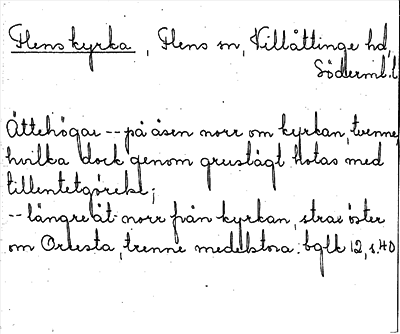 Flens kyrka, Flens sn, Villåttinge hd,
Söderml. l.
Ättehögar -- på åsen norr om kyrkan, tvenne,
hvilka dock genom grustägt hotas med
tillintetgörelse;
-- längre åt norr från kyrkan, strax öster
om Orresta, trenne medelstora. bglk 12, s. 40